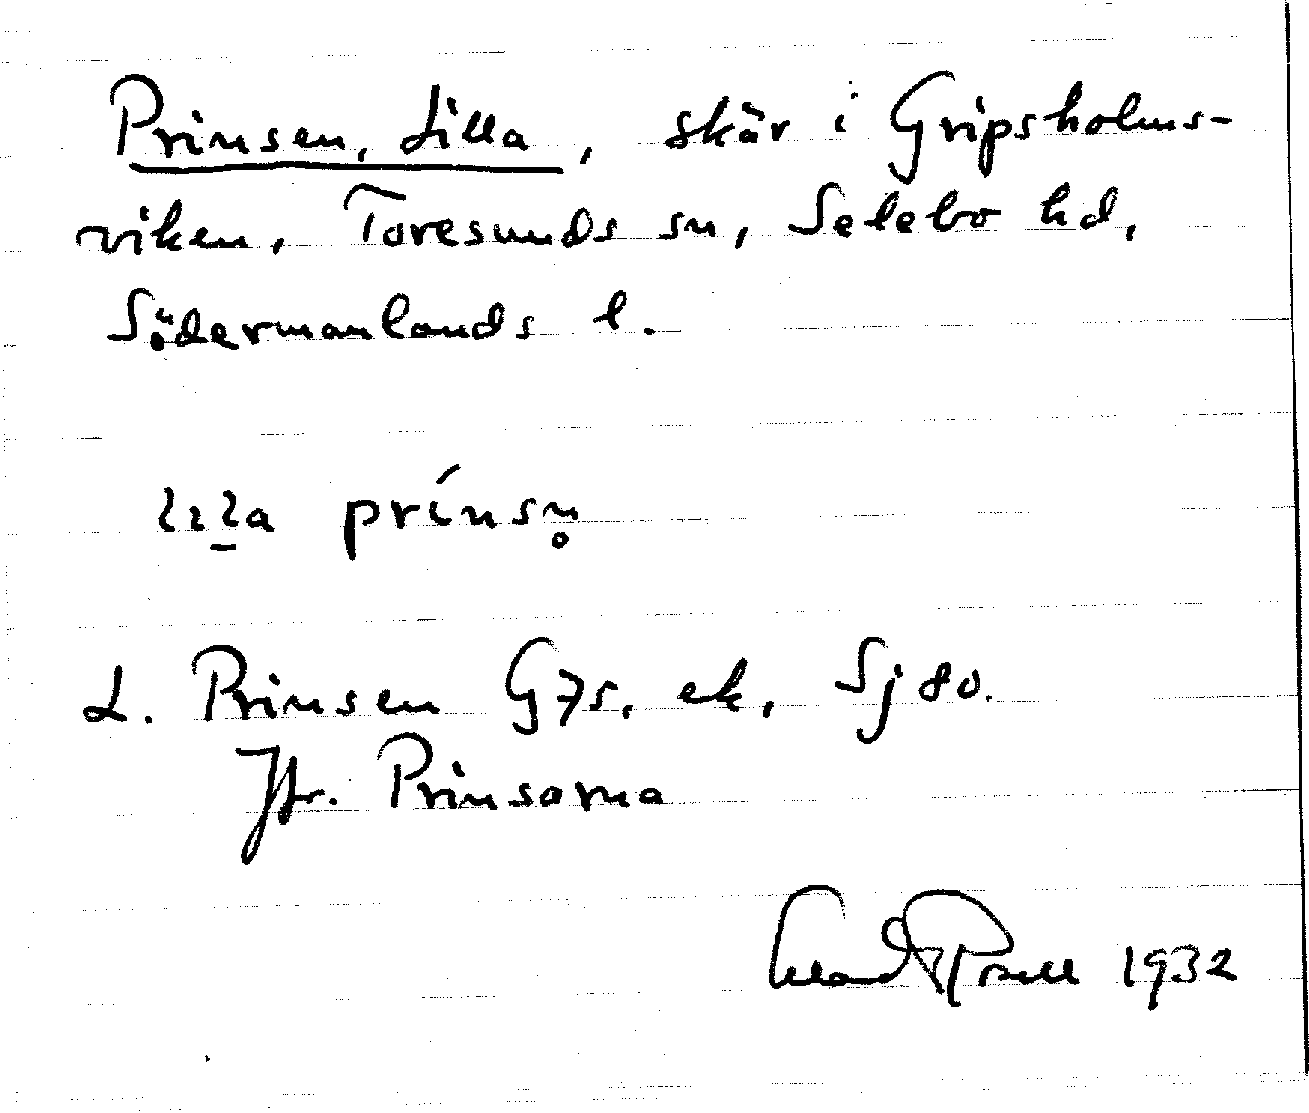 Prinsen, Lilla, skär i Gripsholms-
viken, Toresunds sn, Selebo hd,
Södermanlands l.
lıl̠a prínsn̥
L. Prinsen G7s, ek, Sj 80.
Jfr. Prinsarna
1932